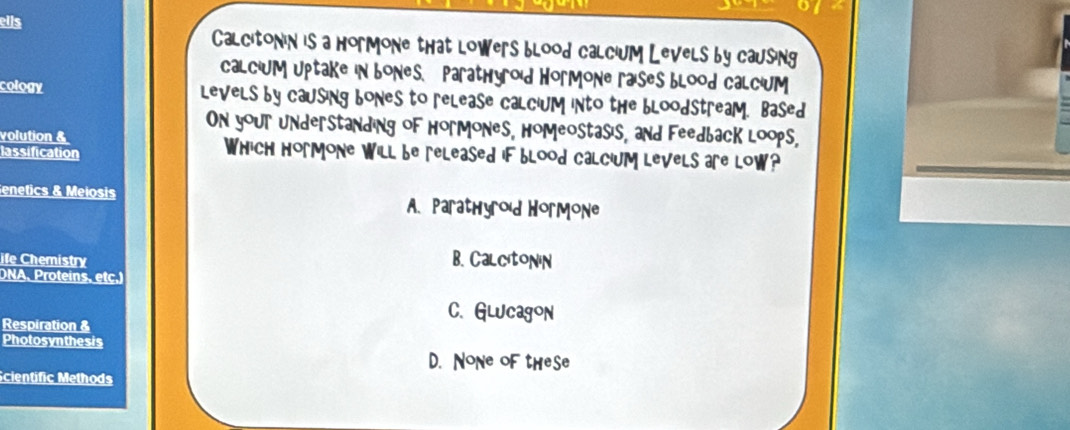 ells
cology
volution &
lassification
enetics & Meiosis
ife Chemistry
DNA, Proteins, etc.)
Respiration &
Photosynthesis
Scientific Methods
Calcitonin is a hormone that lowers blood calcium levels by causing
calcium uptake in bones. Parathyroid hormone raises blood calcium
levels by causing bones to release calcium into the bloodstream. Based
on your understanding of hormones, homeostasis, and feedback loops,
which hormone will be released if blood calcium levels are low?
A. Parathyroid Hormone
B. Calcitonin
C. Glucagon
D. None of these